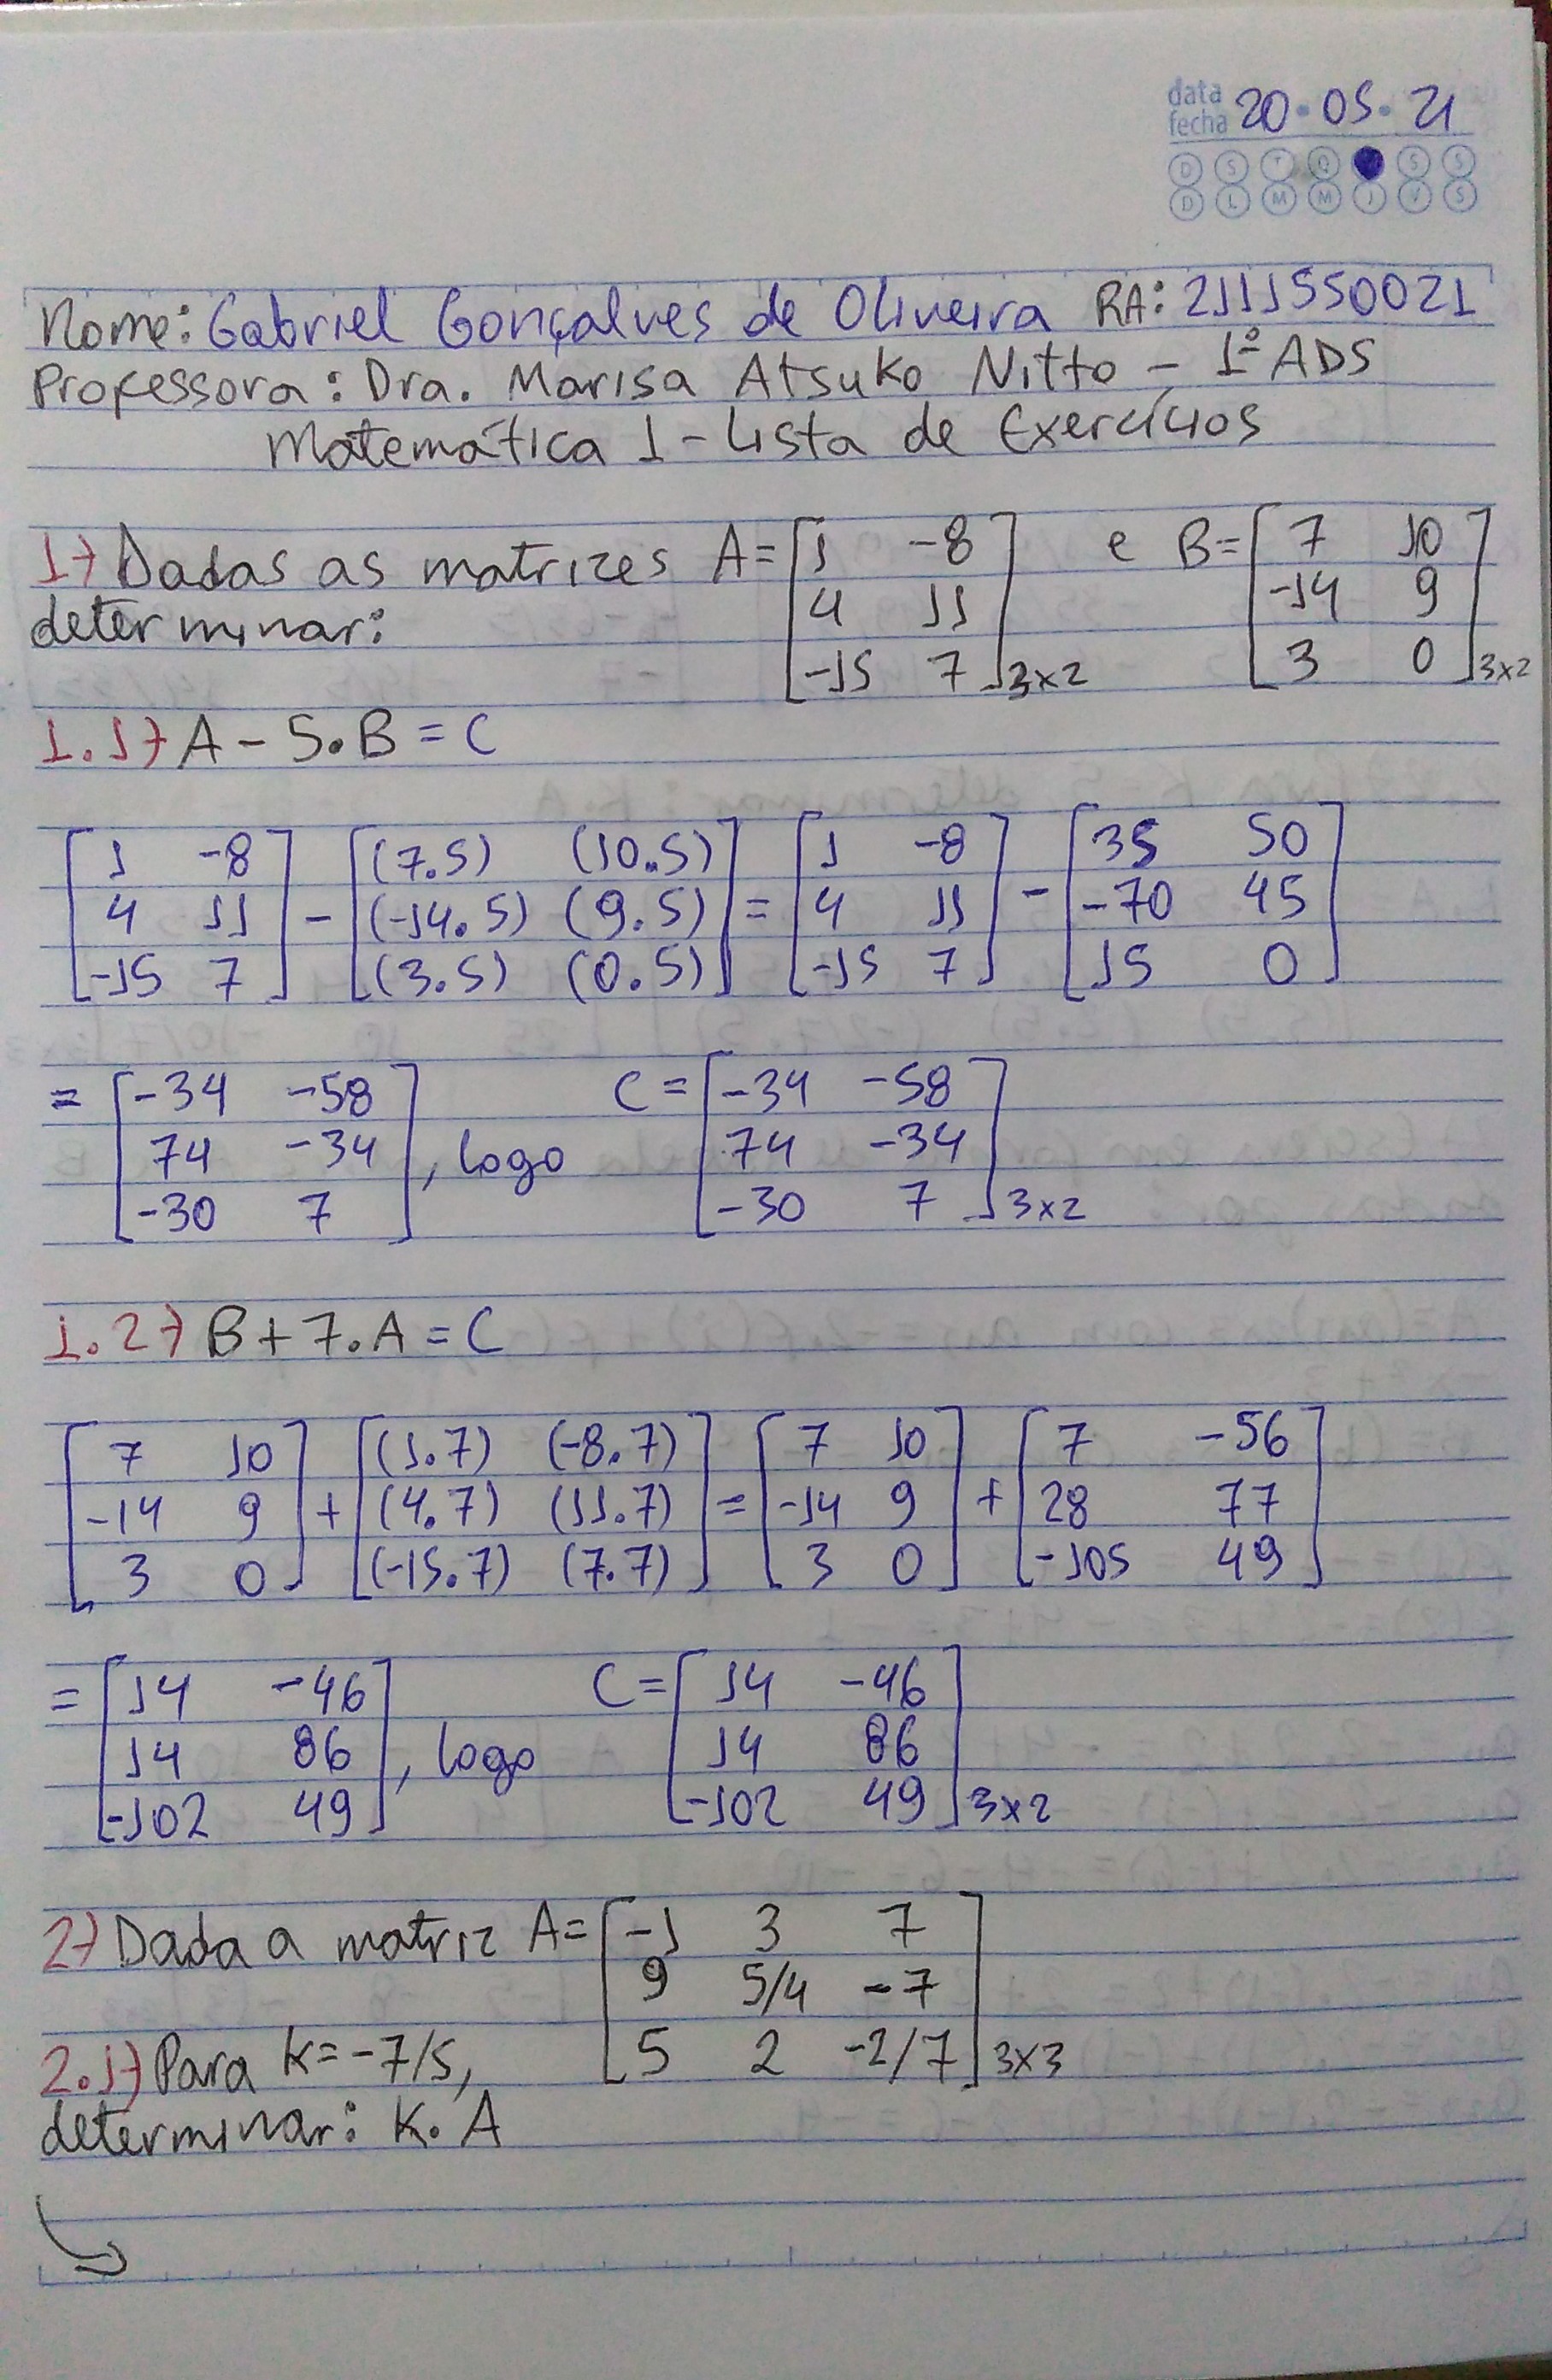 data
fecha 20·05·21
D S T Q S S
D L M M J V S
Nome: Gabriel Gonçalves de Oliveira RA: 2111550021
Professora: Dra. Marisa Atsuko Nitto - 1º ADS
Matemática 1 - Lista de Exercícios
1) Dadas as matrizes A = [1 -8; 4 11; -15 7] 3x2 e B = [7 10; -14 9; 3 0] 3x2
determinar:
1.1) A - 5.B = C
[1 -8; 4 11; -15 7] - [(7.5) (10.5); (-14.5) (9.5); (3.5) (0.5)] = [1 -8; 4 11; -15 7] - [35 50; -70 45; 15 0]
= [-34 -58; 74 -34; -30 7], logo C = [-34 -58; 74 -34; -30 7] 3x2
1.2) B + 7.A = C
[7 10; -14 9; 3 0] + [(1.7) (-8.7); (4.7) (11.7); (-15.7) (7.7)] = [7 10; -14 9; 3 0] + [7 -56; 28 77; -105 49]
= [14 -46; 14 86; -102 49], logo C = [14 -46; 14 86; -102 49] 3x2
2) Dada a matriz A = [-1 3 7; 9 5/4 -7; 5 2 -2/7] 3x3
2.1) Para K = -7/5,
determinar: K.A